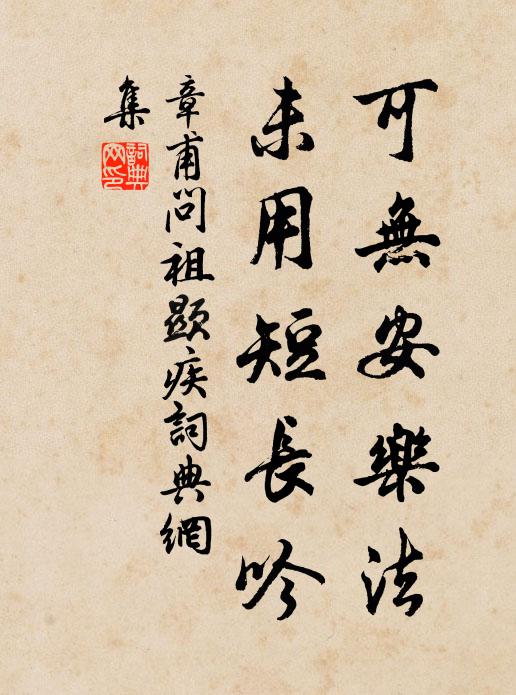 可無安樂法
未用短長吟
章甫問祖顯疾詞典網
集
詞典
网印